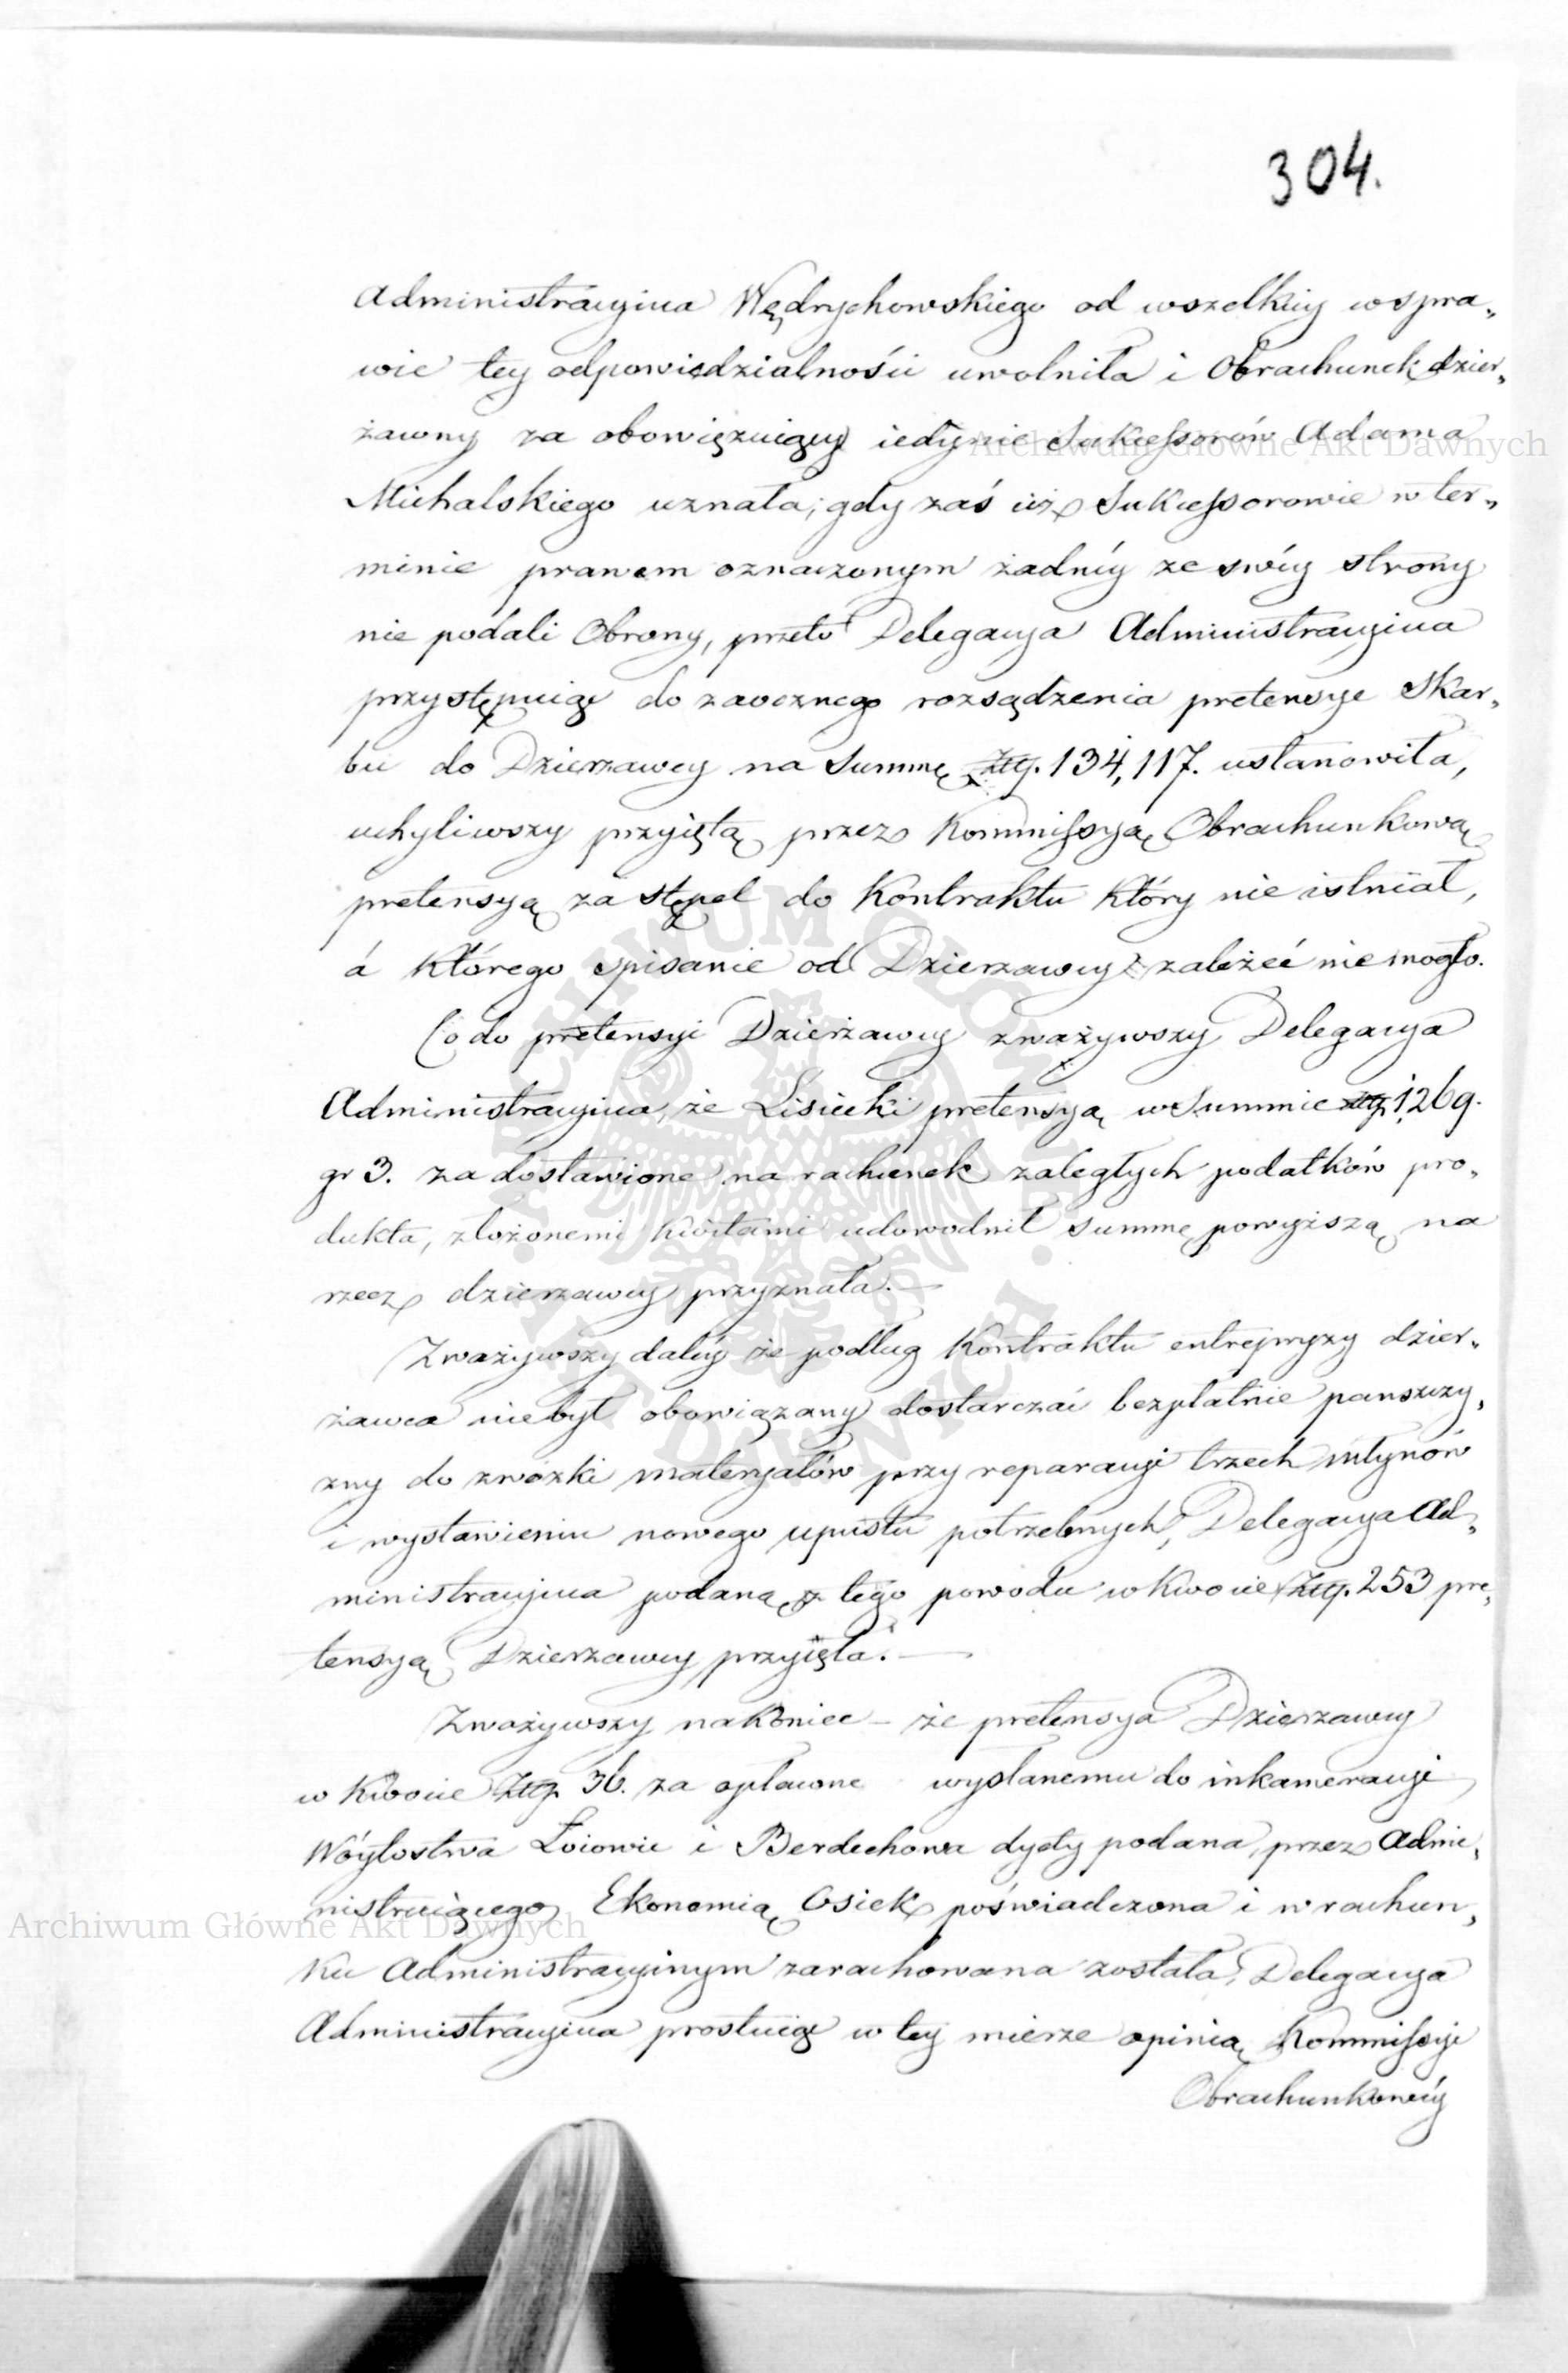 304.
Administracyina Wędrychowskiego od wszelkiey w spra„
wie tey odpowiedzialności uwolniła i Obrachunek dzier„
żawny za obowięzuiący iedynie Sukcessorów Adama
Michalskiego uznała; gdy zaś ciż Sukcessorowie w ter„
minie prawem oznaczonym żadnéy ze swéy strony
nie podali Obrony, przeto Delegacya Administracyina
przystępuiąc do zaocznego rozsądzenia pretensye Skar„
bu do Dzierżawcy na Summę Złłp. 134,117. ustanowiła,
uchyliwszy przyiętą przez Kommissyą Obrachunkową
pretensyą za stępel do Kontraktu który nie istniał,
á którego spisanie od Dzierzawcy zależeć nie mogło.
Co do pretensyi Dzierżawcy zważywszy Delegacya
Administracyina, że Lisiecki pretensyą w Summie złłp. 1,269.
gr 3. za dostawione na rachunek zaległych podatków pro„
dukta, złożonemi kwitami udowodnił summę powyższą na
rzecz dzierzawcy przyznała.—
Zważywszy daléy że podług Kontraktu entrepryzy dzier„
żawca nie był obowiązany dostarczać bezpłatnie panszczy„
zny do zwózki materyałów przy reparacyi trzech młynów
i wystawieniu nowego upustu potrzebnych, Delegacya Ad„
ministracyina podaną z tego powodu w kwocie Złłp. 253 pre„
tensyą Dzierzawcy przyięła.—
Zważywszy nakoniec – że pretensya Dzierzawcy
w kwocie Złłp. 36. za opłacone wysłanemu do inkameracyi
Wóytostwa Łoiowic i Berdechowa dyety podana, przez Admi„
nistruiącego Ekonomią Osiek poświadczona i w rachun„
ku Administracyinym zarachowana została, Delegacya
Administracyina prostuiąc w tey mierze opinią Kommissyi
Obrachunkowéy
Archiwum Główne Akt Dawnych
Archiwum Główne Akt Dawnych
ARCHIWUM GŁÓWNE AKT DAWNYCH